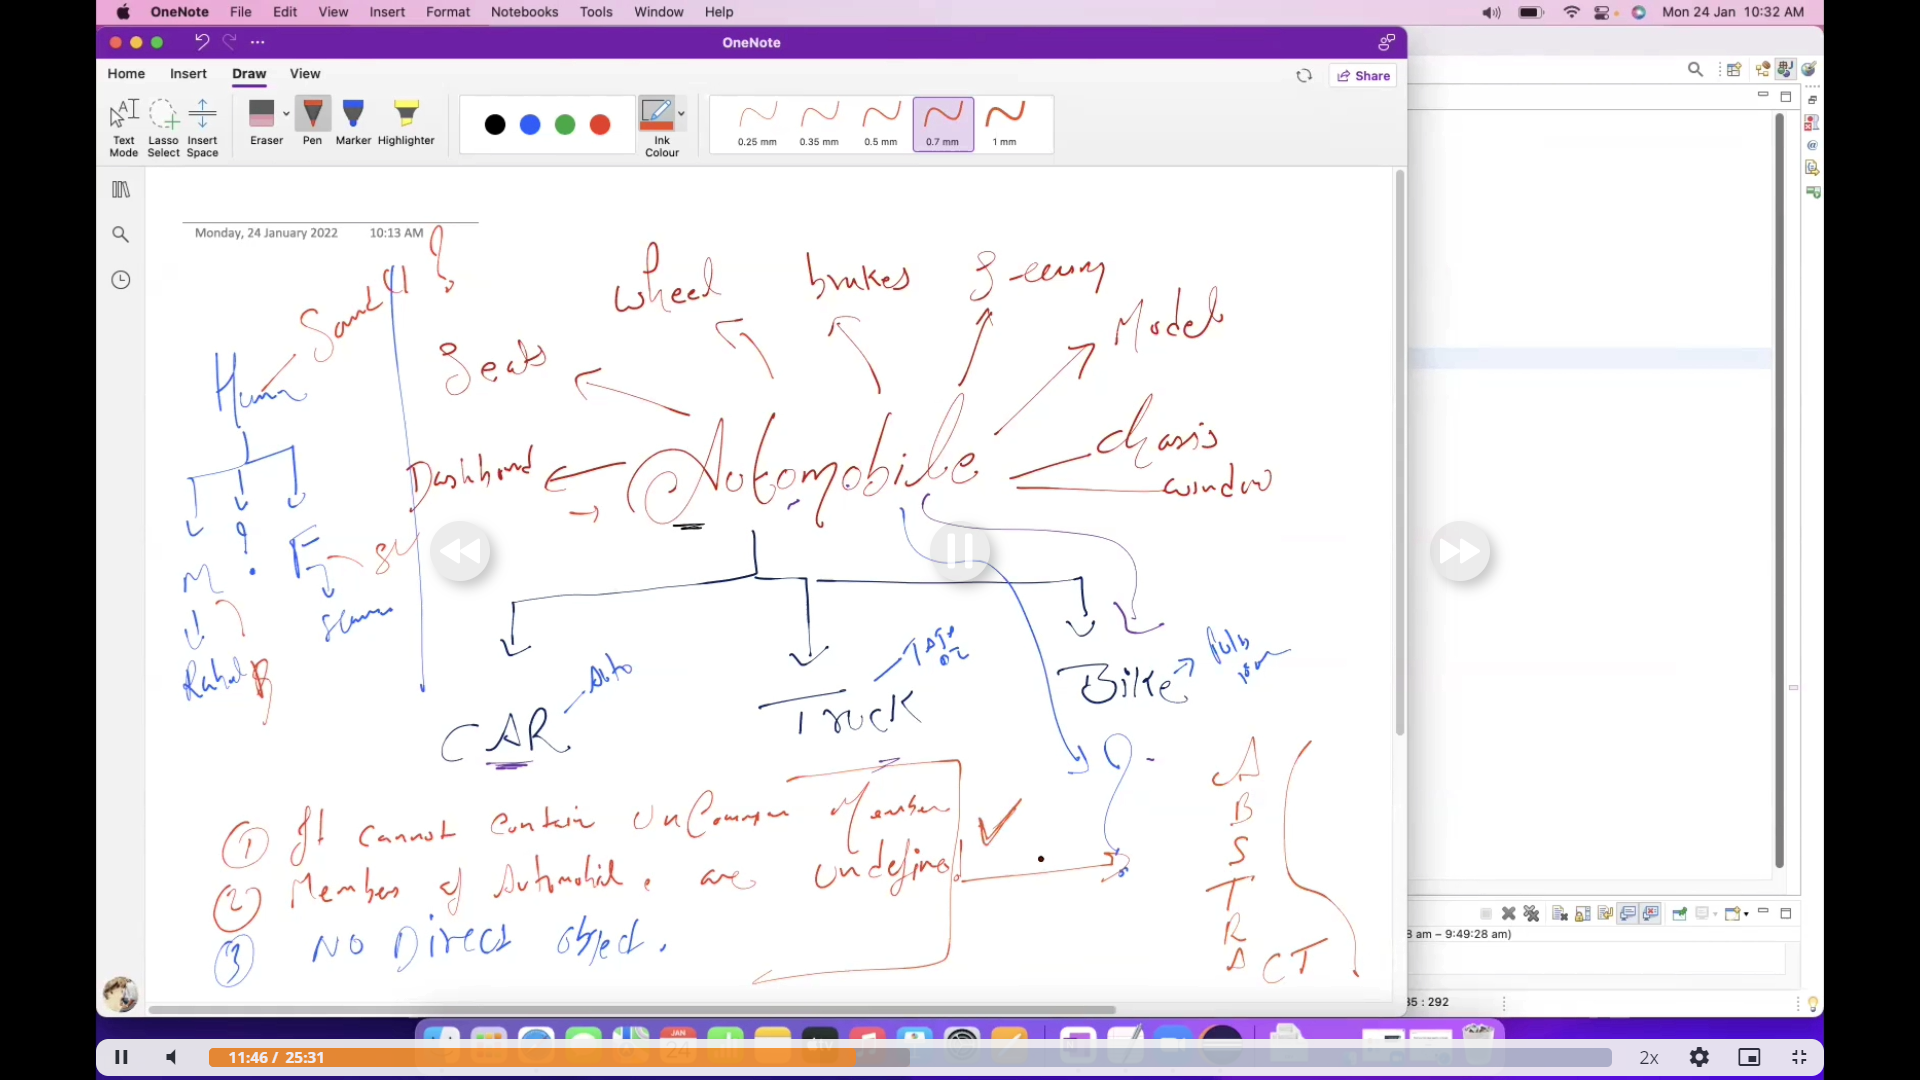 OneNote File Edit View Insert Format Notebooks Tools Window Help
Mon 24 Jan 10:32 AM
OneNote
Home Insert Draw View
Share
Text Mode
Lasso Select
Insert Space
Eraser
Pen
Marker
Highlighter
Ink Colour
0.25 mm
0.35 mm
0.5 mm
0.7 mm
1 mm
Monday, 24 January 2022 10:13 AM
wheel
brakes
Model
Seats
Sound
Dashboard
Automobile
chasis
window
M
F
Rahul
CAR
Auto
Truck
Bike
① It cannot contain UnCommon Member
② Members of Automobile. are Undefined
③ NO Direct object.
A
B
S
T
R
A CT
8 am – 9:49:28 am)
35 : 292
JAN
24
tv
11:46 / 25:31
2x